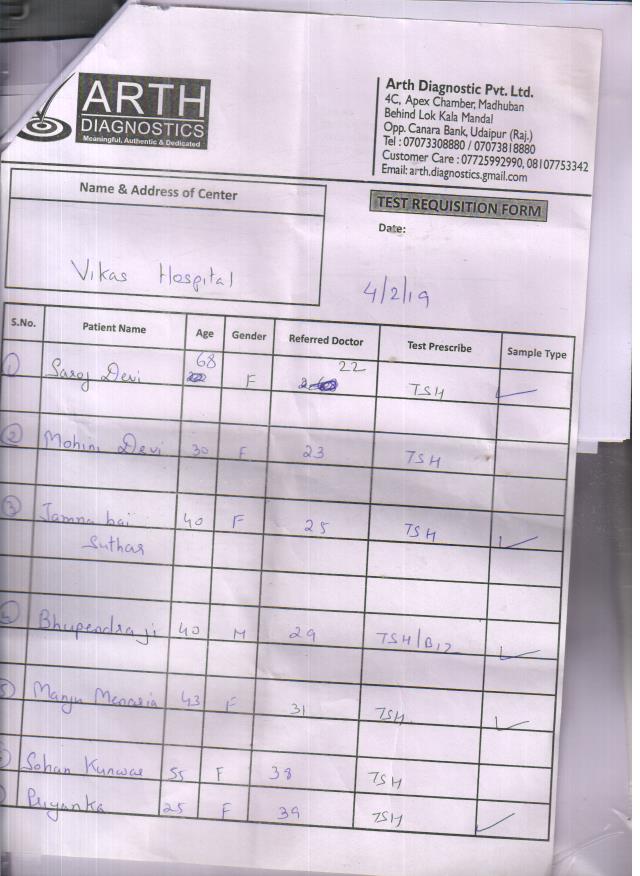 ARTH
DIAGNOSTICS
Meaningful, Authentic & Dedicated
Arth Diagnostic Pvt. Ltd.
4C, Apex Chamber, Madhuban
Behind Lok Kala Mandal
Opp. Canara Bank, Udaipur (Raj.)
Tel : 07073308880 / 07073818880
Customer Care : 07725992990, 08107753342
Email: arth.diagnostics.gmail.com
Name & Address of Center
TEST REQUISITION FORM
Date:
Vikas Hospital
4/2/19
S.No. Patient Name Age Gender Referred Doctor Test Prescribe Sample Type
1 Saroj Devi 68 F 22 TSH
2 Mohini Devi 30 F 23 TSH
3 Jamna bai 40 F 25 TSH
Suthar
4 Bhupendra ji 40 M 29 TSH/B12
5 Manju Menaria 43 F 31 TSH
Sohan Kunwar 55 F 38 TSH
Priyanka 25 F 39 TSH